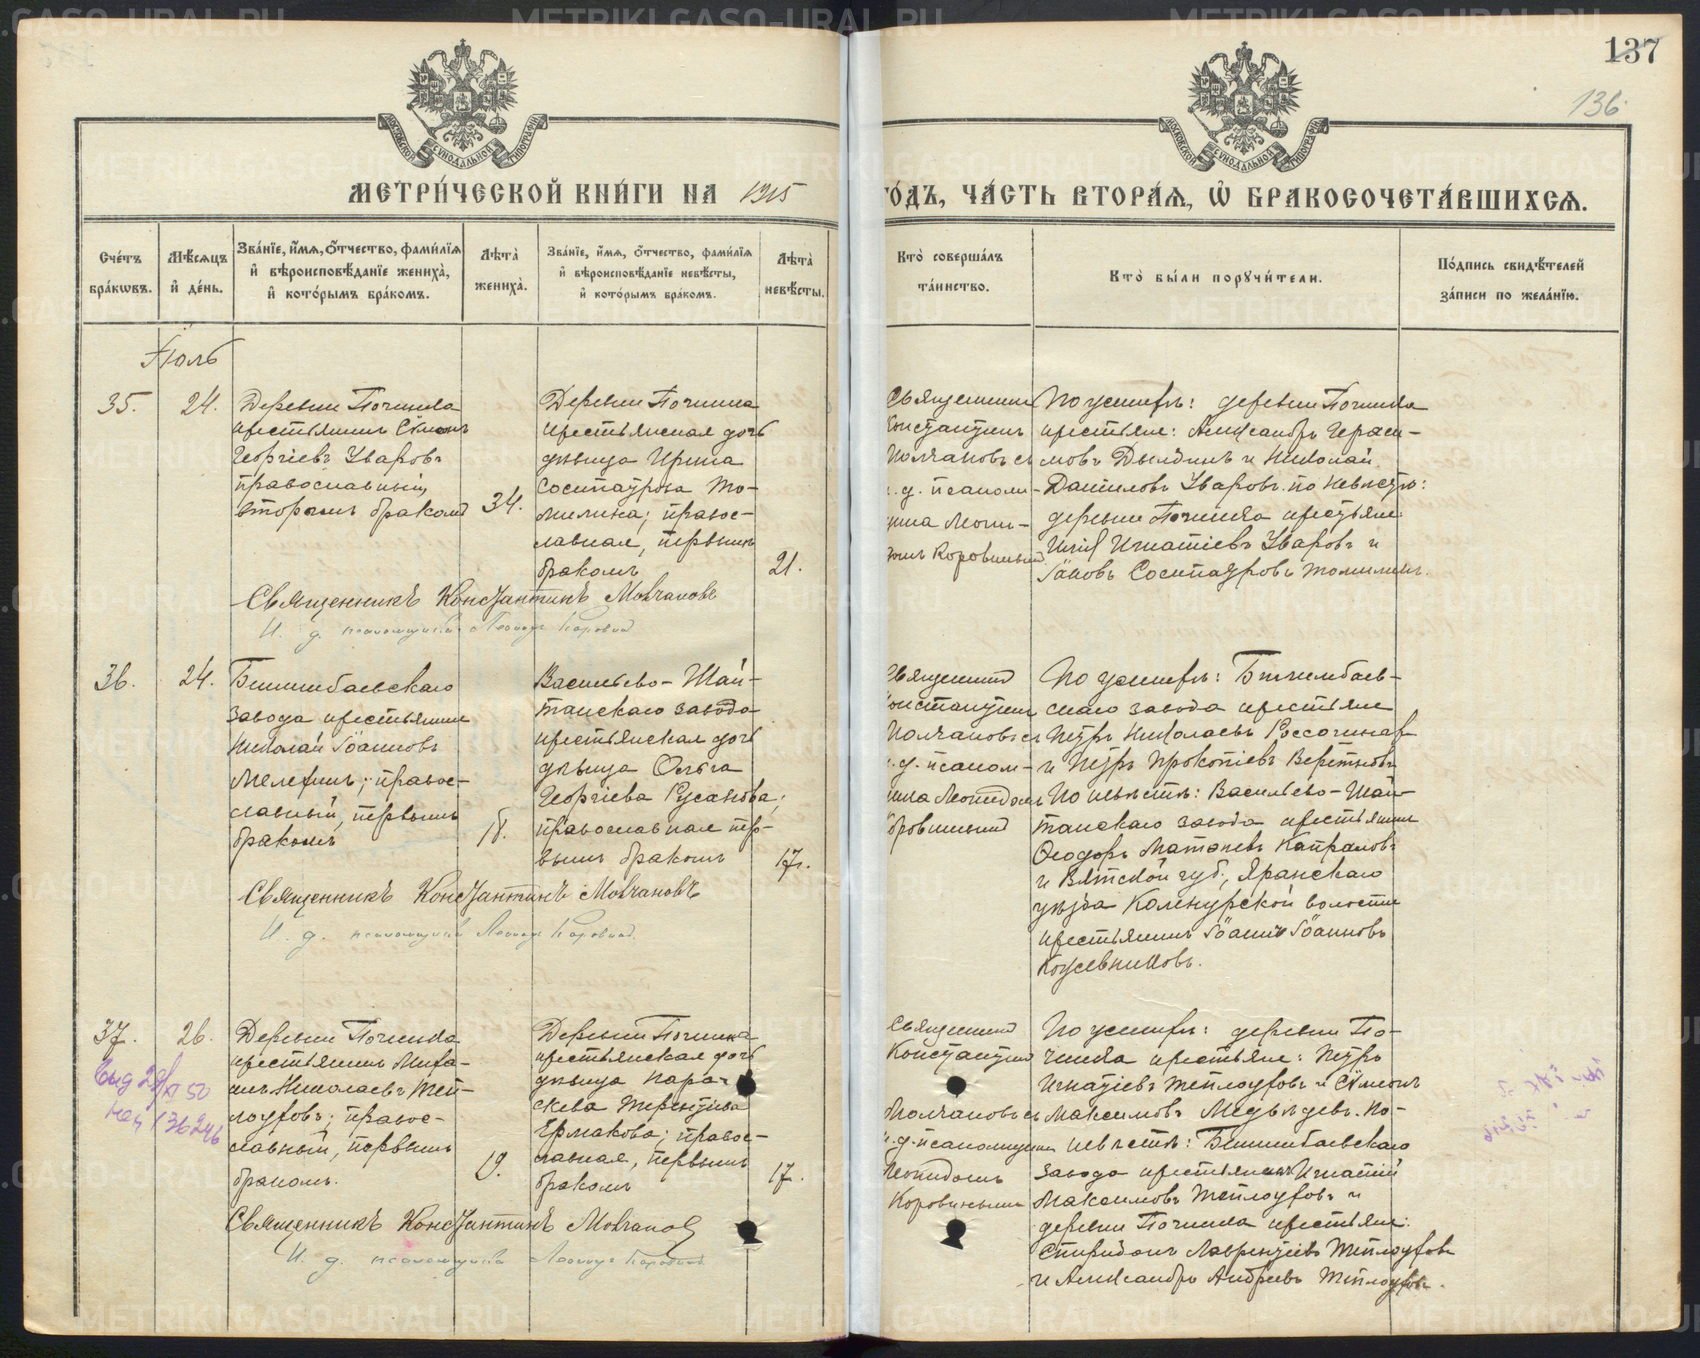 METRIKI.GASO-URAL.RU
137
136.
МЕТРИ́ЧЕСКОЙ КНИ́ГИ НА 1915
ГО́ДЪ, ЧА́СТЬ ВТОРА́Ѧ, Ѽ БРАКОСОЧЕТА́ВШИХСѦ.
Сче́тъ бра́кѡвъ.
Мѣ́сѧцъ и҆ де́нь.
Зва́нїе, и҆́мѧ, ѻ҆́тчество, фами́лїѧ и҆ вѣроисповѣ́данїе жениха̀, и҆ кото́рымъ бра́комъ.
Лѣ́та̀ жениха̀.
Зва́нїе, и҆́мѧ, ѻ҆́тчество, фами́лїѧ и҆ вѣроисповѣ́данїе невѣ́сты, и҆ кото́рымъ бра́комъ.
Лѣ́та̀ невѣ́сты.
Кто̀ соверша́лъ та́инство.
Кто̀ бы́ли порꙋчи́тели.
По́дпись свидѣ́телей за́писи по жела́нїю.
Іюль
35.
24.
Деревни Починка
крестьянинъ Сѵмеонъ
Георгіевъ Уваровъ
православный,
вторымъ бракомъ
34.
Деревни Починка
крестьянская дочь
дѣвица Ирина
Сосипатрова То-
милина; правос-
лавная, первымъ
бракомъ
21.
Священникъ
Константинъ
Молчановъ съ
и. д. псалом-
щика Леони-
домъ Коровинымъ
По женихѣ: деревни Починка
крестьяне: Александръ Гераси-
мовъ Дылдинъ и Николай
Даниловъ Уваровъ. по невѣстѣ:
деревни Починка крестьяне:
Илія Игнатіевъ Уваровъ и
Іаковъ Сосипатровъ Томилинъ.
Священникъ Константинъ Молчановъ
И. д. псаломщика Леонидъ Коровин
36.
24.
Билимбаевскаго
завода крестьянинъ
Николай Іоанновъ
Мелехинъ; правос-
лавный, первымъ
бракомъ
18.
Васильево-Шай-
танскаго завода
крестьянская дочь
дѣвица Ольга
Георгіева Русанова;
православная пер-
вымъ бракомъ
17.
Священникъ
Константинъ
Молчановъ съ
и. д. псалом-
щика Леонидомъ
Коровинымъ
По женихѣ: Билимбаев-
скаго завода крестьяне
Петръ Николаевъ
и Петръ Прокопіевъ
По невѣстѣ: Васильево-Шай-
танскаго завода крестьянинъ
Ѳеодоръ Капраловъ
и Вятской губ., Яранскаго
уѣзда волости
крестьянинъ Іоаннъ Іоанновъ
Кожевниковъ.
Священникъ Константинъ Молчановъ
И. д. псаломщика Леонидъ Коровин.
37.
26.
Деревни Починка
крестьянинъ Миха-
илъ Николаевъ Теп-
лоуховъ; правос-
лавный, первымъ
бракомъ.
19.
Деревни Починка
крестьянская дочь
дѣвица Парас-
кева Терентіева
Ермакова; правос-
лавная, первымъ
бракомъ
17.
Священникъ
Константинъ
Молчановъ съ
и. д. псаломщика
Леонидомъ
Коровинымъ
По женихѣ: деревни По-
чинка крестьяне: Петръ
Игнатіевъ Теплоуховъ и Сѵмеонъ
Максимовъ Медвѣдевъ. По
невѣстѣ: Билимбаевскаго
завода крестьянинъ Игнатій
Максимовъ Теплоуховъ и
деревни Починка крестьяне:
Спиридонъ Лаврентіевъ Теплоуховъ
и Александръ Андреевъ Теплоуховъ.
Священникъ Константинъ Молчановъ
И. д. псаломщика Леонидъ Коровинъ